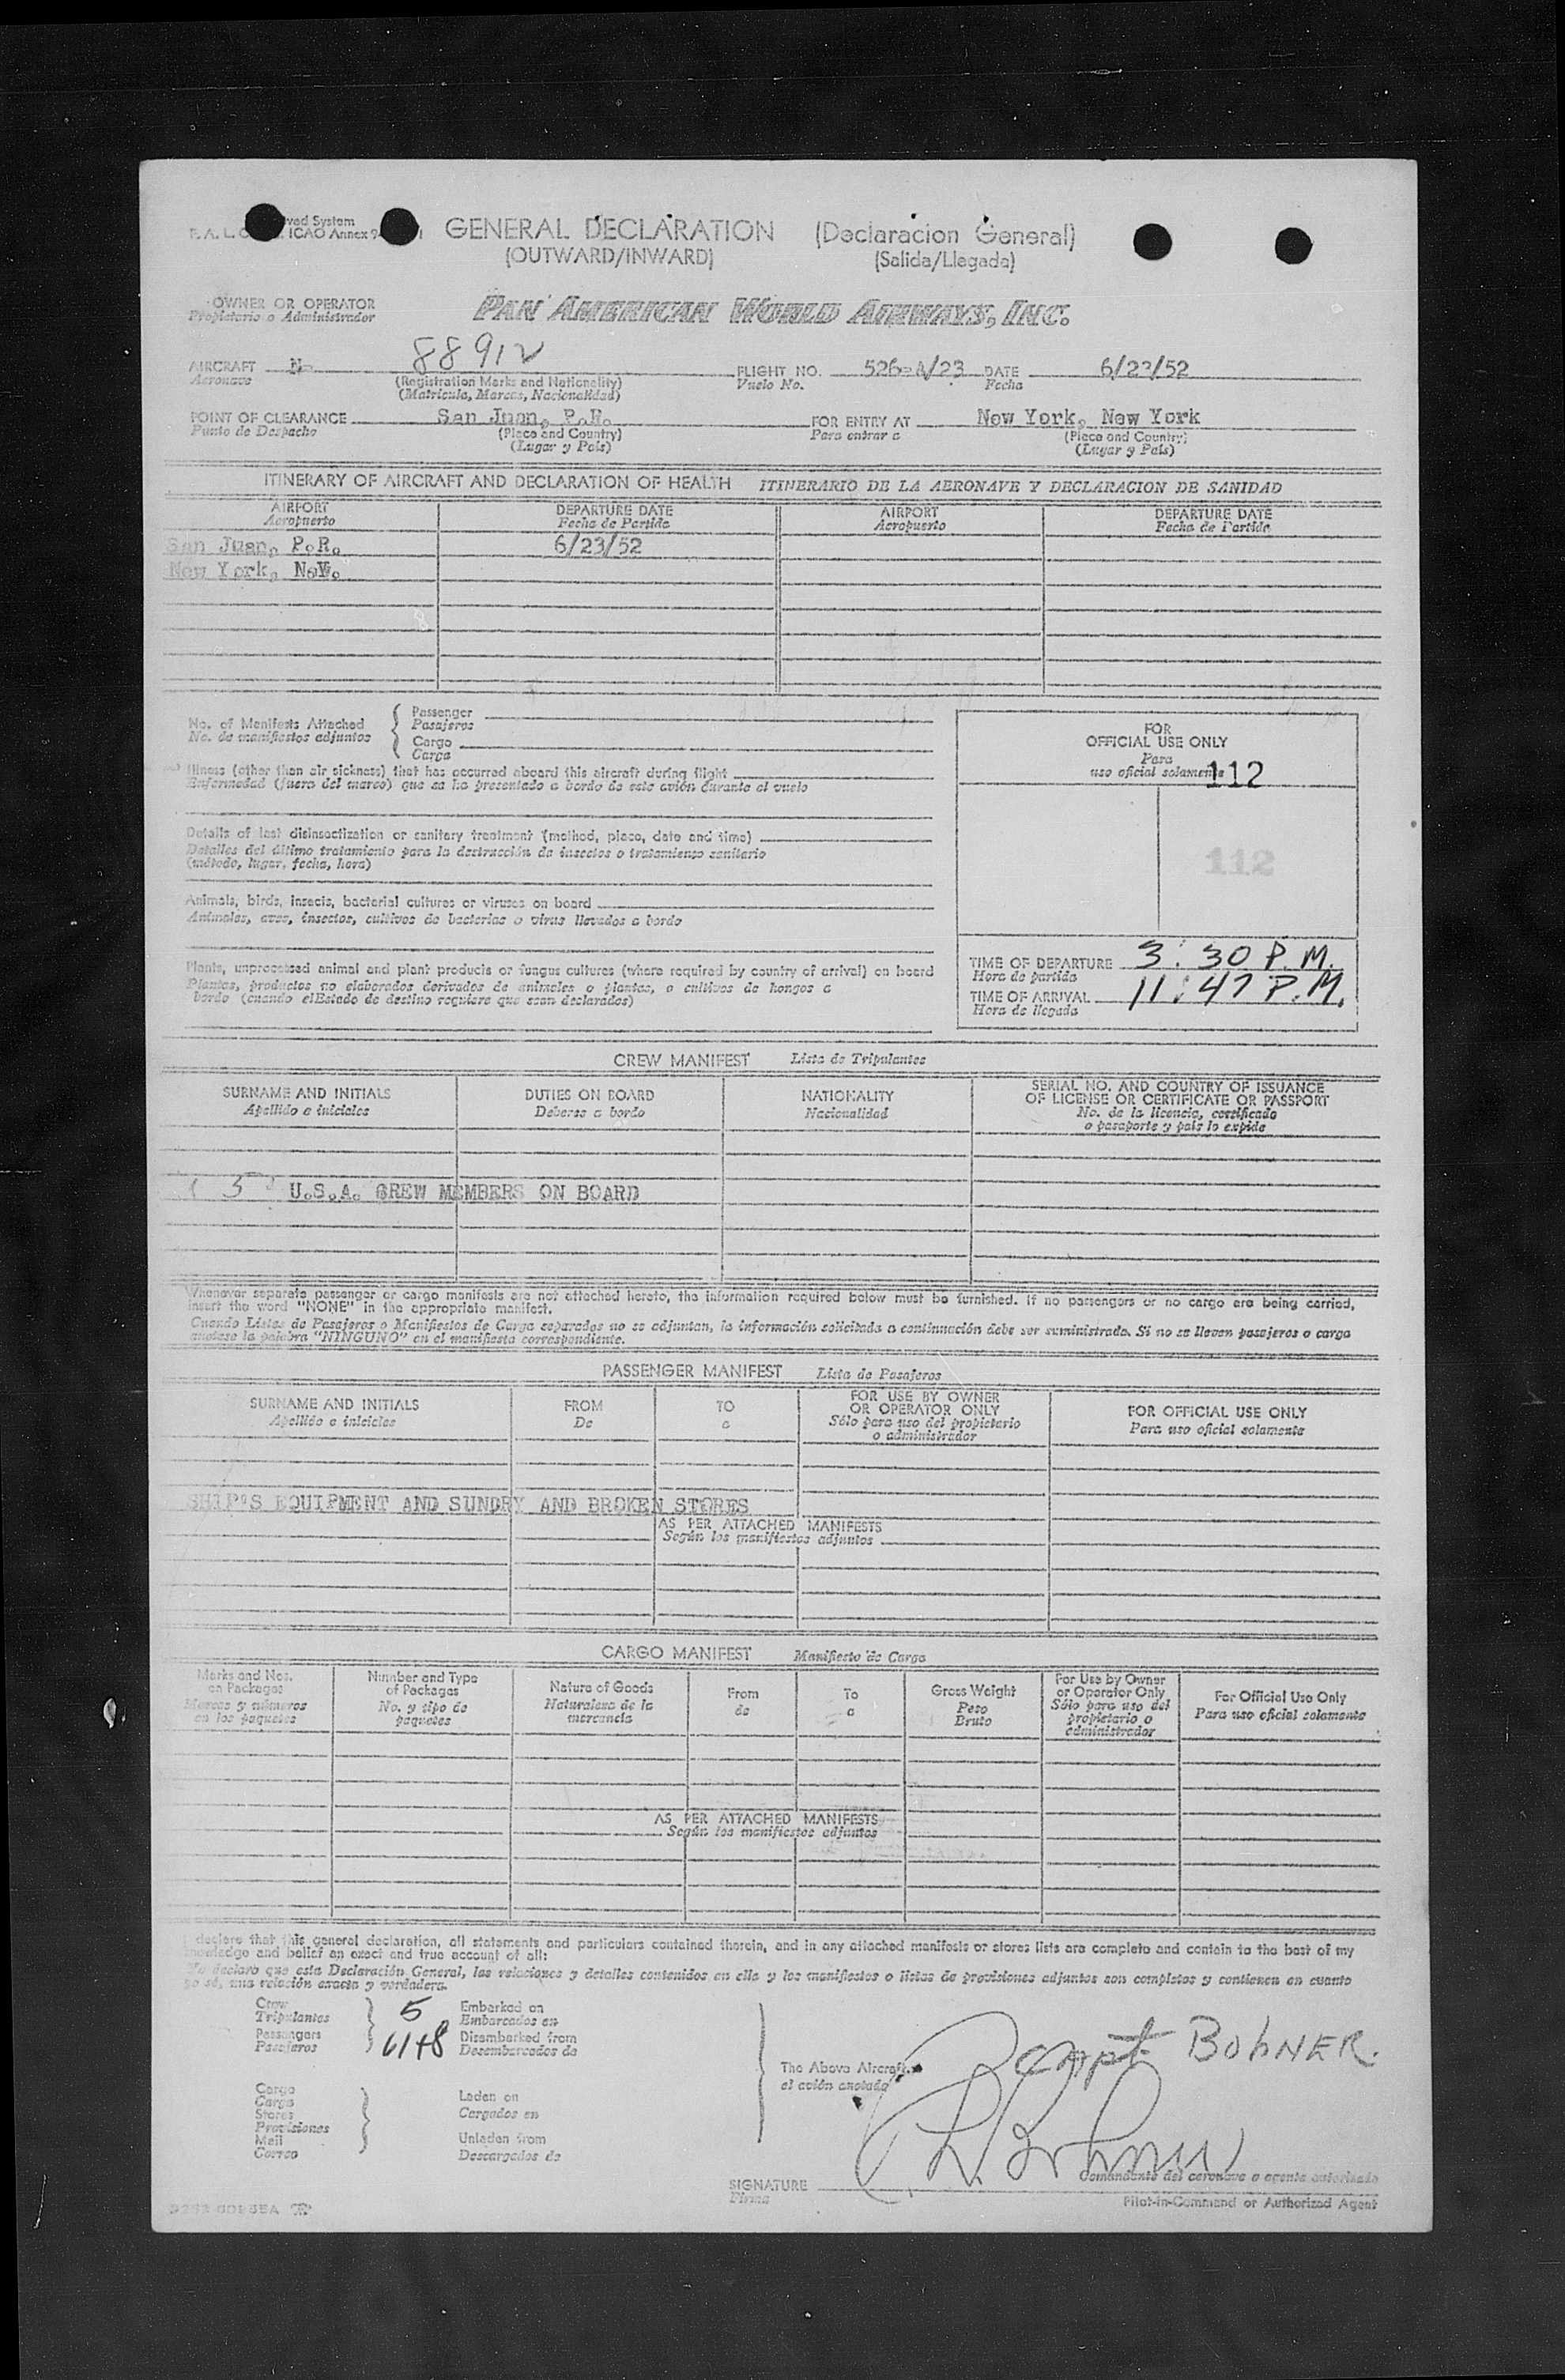 F. A. L. ICAO Annex 9
GENERAL DECLARATION (Declaracion General)
(OUTWARD/INWARD) (Salida/Llegada)
OWNER OR OPERATOR
Propietario o Administrador
PAN AMERICAN WORLD AIRWAYS, INC.
AIRCRAFT N- 88912 FLIGHT NO. 526-A/23 DATE 6/23/52
Aeronave (Registration Marks and Nationality) Vuelo No. Fecha
(Matricula, Marcas, Nacionalidad)
POINT OF CLEARANCE San Juan, P.R. FOR ENTRY AT New York, New York
Punto de Despacho (Place and Country) Para entrar a (Place and Country)
(Lugar y País) (Lugar y País)
ITINERARY OF AIRCRAFT AND DECLARATION OF HEALTH ITINERARIO DE LA AERONAVE Y DECLARACION DE SANIDAD
AIRPORT DEPARTURE DATE AIRPORT DEPARTURE DATE
Aeropuerto Fecha de Partida Aeropuerto Fecha de Partida
San Juan, P.R. 6/23/52
New York, N.Y.
No. of Manifests Attached
No. de manifiestos adjuntos
Passenger
Pasajeros
Cargo
Carga
FOR
OFFICIAL USE ONLY
Para
uso oficial solamente
112
112
Illness (other than air sickness) that has occurred aboard this aircraft during flight
Enfermedad (fuera del mareo) que se ha presentado a bordo de este avión durante el vuelo
Details of last disinsectization or sanitary treatment (method, place, date and time)
Detalles del último tratamiento para la destrucción de insectos o tratamiento sanitario
(método, lugar, fecha, hora)
Animals, birds, insects, bacterial cultures or viruses on board
Animales, aves, insectos, cultivos de bacterias o virus llevados a bordo
Plants, unprocessed animal and plant products or fungus cultures (where required by country of arrival) on board
Plantas, productos no elaborados derivados de animales o plantas, o cultivos de hongos a
bordo (cuando el Estado de destino requiera que sean declarados)
TIME OF DEPARTURE 3:30 P.M.
Hora de partida
TIME OF ARRIVAL 11:47 P.M.
Hora de llegada
CREW MANIFEST Lista de Tripulantes
SURNAME AND INITIALS DUTIES ON BOARD NATIONALITY SERIAL NO. AND COUNTRY OF ISSUANCE
OF LICENSE OR CERTIFICATE OR PASSPORT
Apellido e iniciales Deberes a bordo Nacionalidad No. de la licencia, certificado
o pasaporte y país lo expide
( 5 ) U.S.A. CREW MEMBERS ON BOARD
Whenever separate passenger or cargo manifests are not attached hereto, the information required below must be furnished. If no passengers or no cargo are being carried,
insert the word "NONE" in the appropriate manifest.
Cuando Listas de Pasajeros o Manifiestos de Carga separados no se adjuntan, la información solicitada a continuación debe ser suministrada. Si no se lleven pasajeros o carga
anótese la palabra "NINGUNO" en el manifiesto correspondiente.
PASSENGER MANIFEST Lista de Pasajeros
SURNAME AND INITIALS FROM TO FOR USE BY OWNER
OR OPERATOR ONLY FOR OFFICIAL USE ONLY
Apellido e iniciales De a Sólo para uso del propietario
o administrador Para uso oficial solamente
SHIP'S EQUIPMENT AND SUNDRY AND BROKEN STORES
AS PER ATTACHED MANIFESTS
Según los manifiestos adjuntos
CARGO MANIFEST Manifiesto de Carga
Marks and Nos.
on Packages
Marcas y números
en los paquetes
Number and Type
of Packages
No. y tipo de
paquetes
Nature of Goods
Naturaleza de la
mercancía
From
de
To
a
Gross Weight
Peso
Bruto
For Use by Owner
or Operator Only
Sólo para uso del
propietario o
administrador
For Official Use Only
Para uso oficial solamente
AS PER ATTACHED MANIFESTS
Según los manifiestos adjuntos
I declare that this general declaration, all statements and particulars contained therein, and in any attached manifests or stores lists are complete and contain to the best of my
knowledge and belief an exact and true account of all:
Yo declaro que esta Declaración General, las relaciones y detalles contenidos en ella y los manifiestos o listas de provisiones adjuntos son completos y contienen en cuanto
yo sé, una relación exacta y verdadera.
Crew
Tripulantes
5
Passengers
Pasajeros
61+8
Embarked on
Embarcados en
Disembarked from
Desembarcados de
Cargo
Carga
Stores
Provisiones
Mail
Correo
Laden on
Cargados en
Unladen from
Descargados de
The Above Aircraft
el avión anotado
Capt. BOHNER.
SIGNATURE
Firma
Comandante del aeronave o agente autorizado
Pilot-in-Command or Authorized Agent